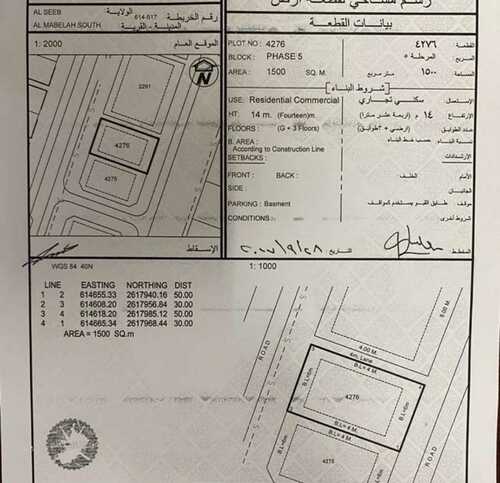 رسم مساحي لقطعة أرض
بيانات القطعة
AL SEEB الولاية
AL MABELAH SOUTH المدينة - القرية
614-617 رقم الخريطة
1: 2000 الموقع العام
2291
4276
4275
PLOT NO: 4276 ٤٢٧٦ القطعة:
BLOCK: PHASE 5 المرحلة ٥ المربع:
AREA: 1500 SQ. M. متر مربع ١٥٠٠ المساحة:
شروط البناء
USE: Residential Commercial سكني تجاري الاستعمال:
HT: 14 m. (Fourteen)m. (اربعة عشر مترا) ١٤ م الارتفاع:
FLOORS: (G + 3 Floors) (ارضي + ٣طوابق) عدد الطوابق:
B. AREA: According to Construction Line حسب خط البناء نسبة البناء:
SETBACKS: الارتدادات:
FRONT: BACK: الخلف:
SIDE: الجانبان:
PARKING: Basment طابق القبو يستخدم كمواقف مواقف:
CONDITIONS شروط أخرى
المخطط: التاريخ
الإسقاط
WGS 84 40N
1: 1000
LINE EASTING NORTHING DIST
1 2 614655.33 2617940.16 50.00
2 3 614608.20 2617956.84 30.00
3 4 614618.20 2617985.12 50.00
4 .1 614665.34 2617968.44 30.00
AREA = 1500 SQ.m
ROAD
4.00 M.
4m. Lane
B.L= 4 M.
5.00 M.
B.L=6m
4276
B.L=6m
B.L= 4 M.
ROAD
4275